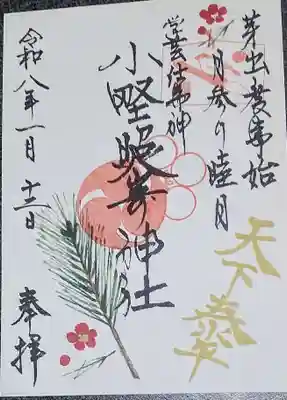 芽出度事始
一月参り睦月
学芸諸藝神
小野照崎神社
天下泰平
令和八年一月十二日
奉拝